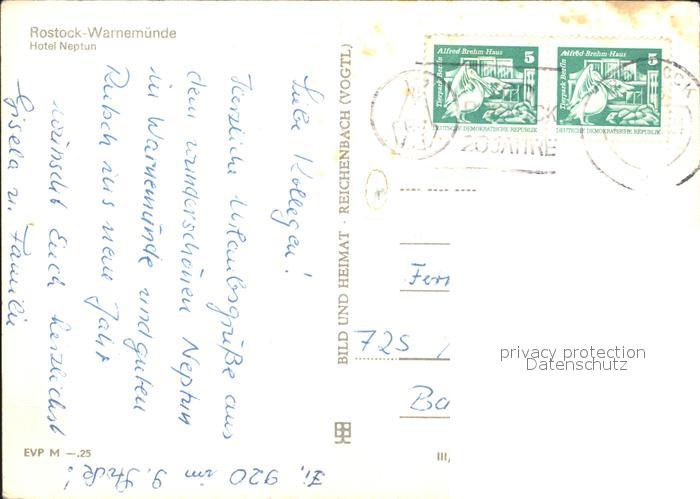 Rostock-Warnemünde
Hotel Neptun
Liebe Kollegen!
Herzliche Urlaubsgrüße aus
dem wunderschönen Neptun
in Warnemünde und guten
Rutsch ins neue Jahr
wünscht Euch herzlichst
Gisela u. Familie
Zi. 920 im 9. Stock!
EVP M —.25
BILD UND HEIMAT · REICHENBACH (VOGTL)
III/
Alfred-Brehm-Haus 5
Tierpark Berlin
DEUTSCHE DEMOKRATISCHE REPUBLIK
Alfred-Brehm-Haus 5
Tierpark Berlin
DEUTSCHE DEMOKRATISCHE REPUBLIK
20 JAHRE
Fern
725
Ba
privacy protection
Datenschutz